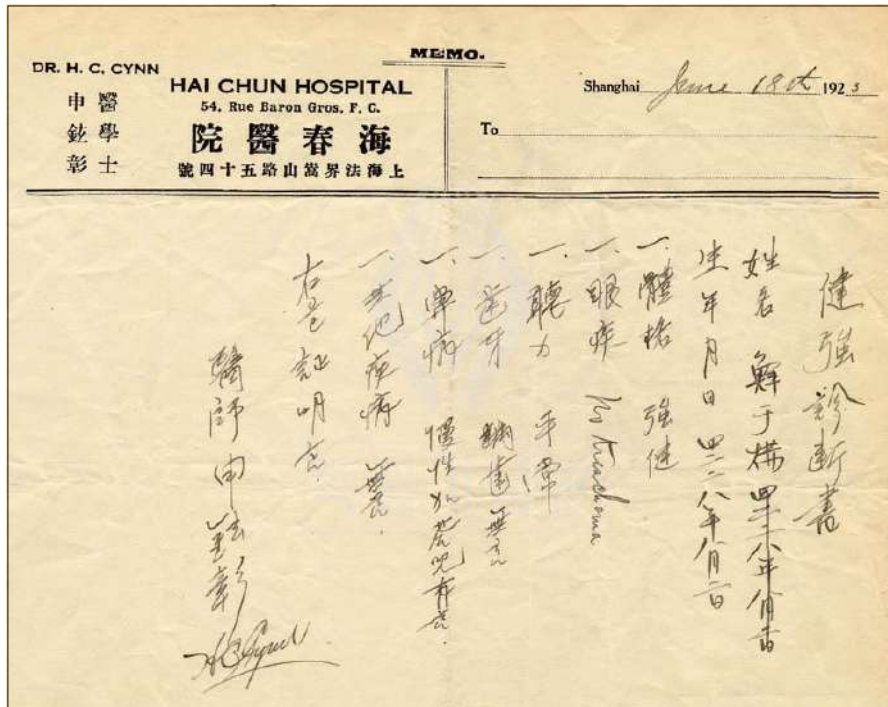 MEMO.
DR. H. C. CYNN
醫學士
申鉉彰
HAI CHUN HOSPITAL
54, Rue Baron Gros, F. C.
海春醫院
上海法界嵩山路五十四號
Shanghai June 18th 1923
To
健强診斷書
姓名 鮮于㷯
生年月日 四二二八年八月二日
一. 體格 强健
一. 眼疾 No trachoma
一. 聽力 平常
一. 齒牙 齲齒無함
一. 鼻病 慢性
一. 其他疾病 無함.
右를 証明함.
醫師 申鉉彰
H C Cynn